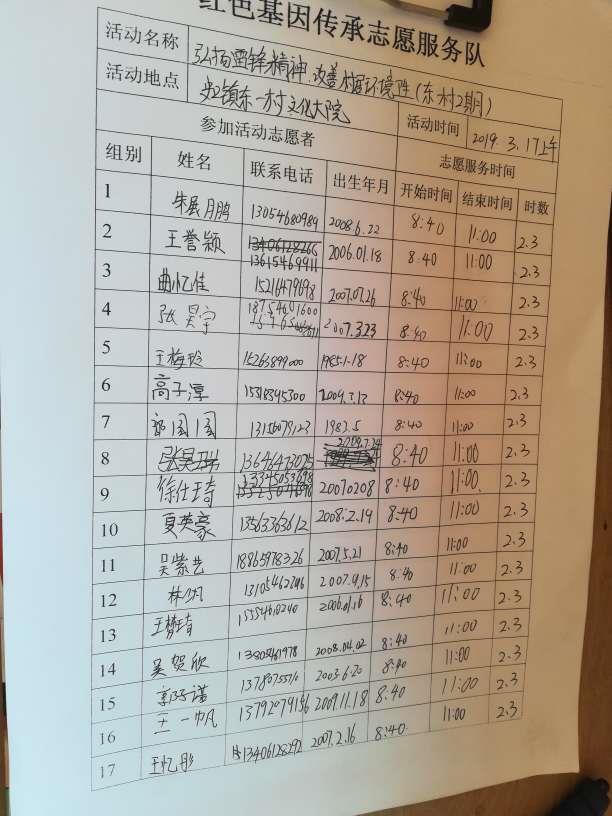 红色基因传承志愿服务队
活动名称 弘扬雷锋精神,改善村居环境性(东一村2期)
活动地点 史口镇东一村文化大院 活动时间 2019.3.17上午
参加活动志愿者 志愿服务时间
组别 姓名 联系电话 出生年月 开始时间 结束时间 时数
1 朱展鹏 13054680989 2008.6.22 8:40 11:00 2.3
2 王誉颖 13406128266 13615469911 2006.01.18 8:40 11:00 2.3
3 曲忆佳 15216479698 2007.07.26 8:40 11:00 2.3
4 张昊宇 18754601600 2007.3.23 8:40 11:00 2.3
5 王梅玲 15263899000 1985.1.18 8:40 11:00 2.3
6 高子淳 8:40 11:00 2.3
7 郭园园 13156079123 1983.5 8:40 11:00 2.3
8 13646473025 8:40 11:00 2.3
9 徐仕琦 13345053698 20070208 8:40 11:00 2.3
10 夏英豪 13563363612 2008.2.19 8:40 11:00 2.3
11 吴紫艺 18865978326 2007.5.21 8:40 11:00 2.3
12 林帆 2007.9.15 8:40 11:00 2.3
13 王梦琦 15554610240 2006.01.16 8:40 11:00 2.3
14 吴贺欣 2008.04.02 8:40 11:00 2.3
15 2003.6.20 8:40 11:00 2.3
16 王一帆 13792079156 2009.11.18 8:40 11:00 2.3
17 王忆彤 13406128292 2007.2.16 8:40